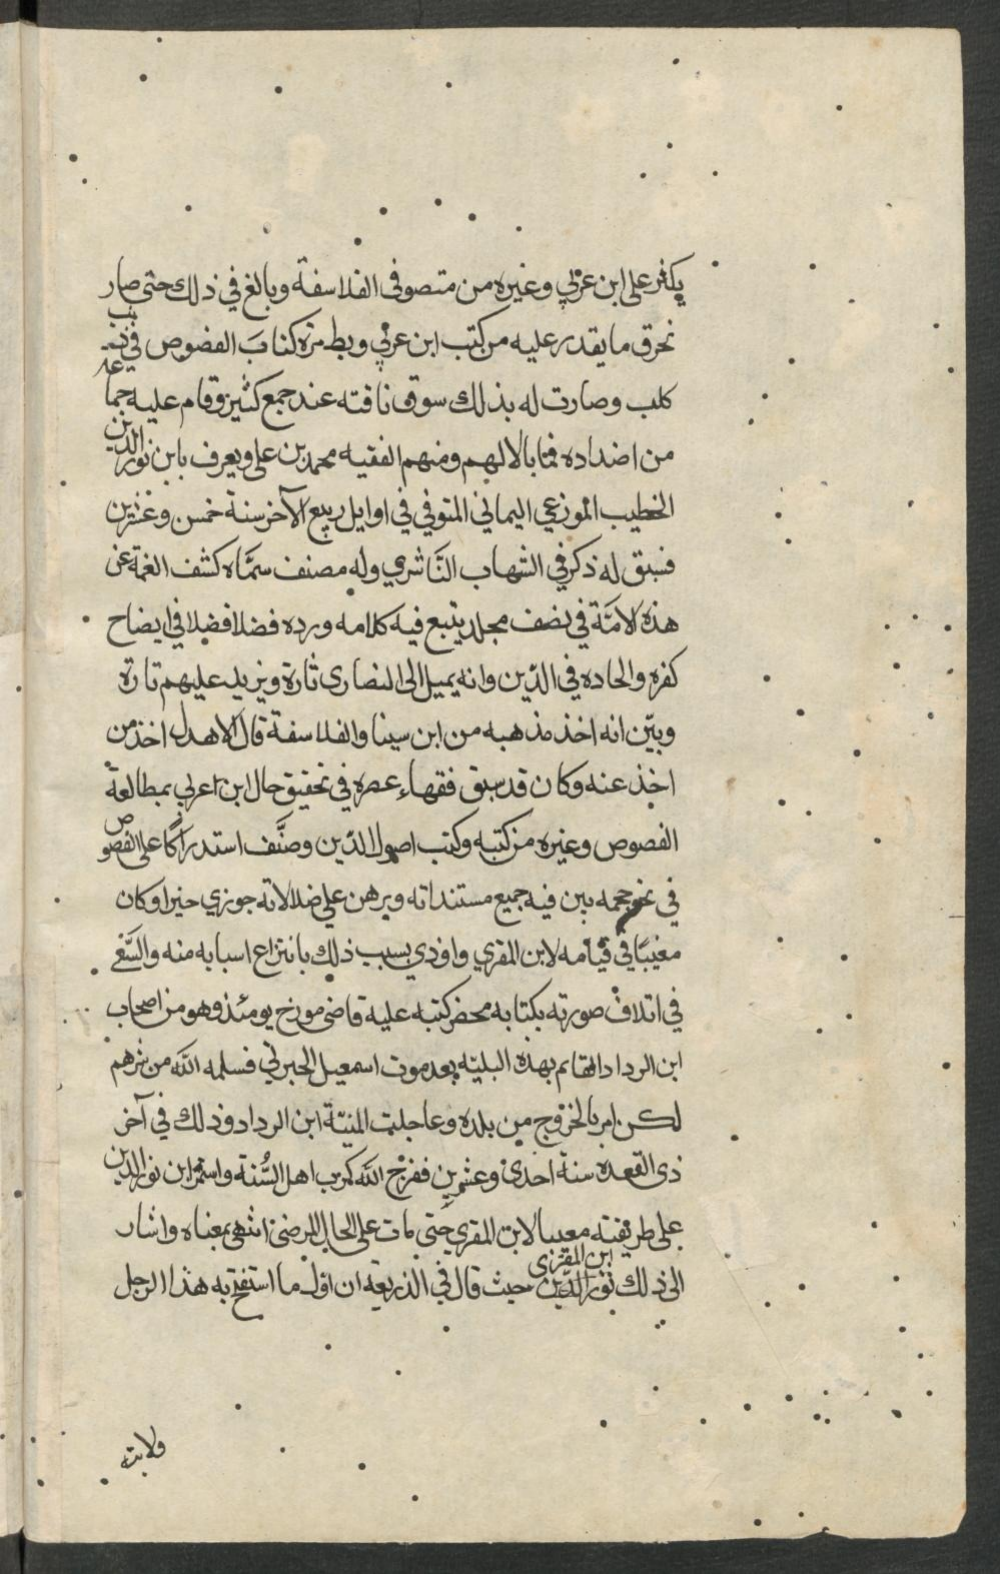 يكفر على ابن عربي وغيره من متصوفى الفلاسفة وبالغ في ذلك حتى صار
نحرق ما يقدر عليه من كتب ابن عربي وبط مرة كتابَ الفصوص في ذنب
كلب وصارت له بذلك سوق نافته عند جمع كثير وقام عليه جماعه
من اضداده فما بالا لهم ومنهم الفقيه محمد بن على ويعرف بابن نور الدين
الخطيب الموزعي اليماني المتوفي في اوايل ربيع الآخر سنة خمس وعشرين
فسبق له ذكر في الشهاب النَّاشري وله مصنف سمَّاه كشف الغمة عن
هذه لامَّة في نصف مجلد يتبع فيه كلامه ورده فصلا فصلا في ايضاح
كفره والحاده في الدّين وانه يميل الى النصارى تارة ويزيد عليهم تارة
وبيّن انه اخذ مذهبه من ابن سينا والفلاسفة قال الاهدل اخذ من
اخذ عنه وكان قد سبق فقهاء عصره في تحقيق حال ابن اعربي بمطالعة
الفصوص وغيره من كتبه وكتب اصول الدّين وصنَّف استدراكًا على الفصوص
في نحو حجمه بين فيه جميع مستنداته وبرهن على ضلالاته جوزي خيرا وكان
معيبًا في قيامه لابن المقري واوذي بسبب ذلك بانتزاع اسبابه منه والسَّعي
في اتلاف صورته بكتابه محضر كتبه عليه قاضى موزخ يومئذ وهو من اصحاب
ابن الرداد القايم بهذه البليّه بعد موت اسمعيل الجبرتي فسلمه الله من شرهم
لكن امر بالخروج من بلده وعاجلت المنيّة ابن الرداد وذلك في آخر
ذى القعده سنة احدى وعشرين ففرّج الله كرب اهل السُّنة واستمرّ ابن نور الدين
على طريقته معيبا لابن المقري حتى مات على الحال المرضىّ انتهى بمعناه واشار
ابن المقرى
الى ذلك نور الدين حيث قال في الذريعه ان اوّل ما استفتح به هذا الرجل
ولايته